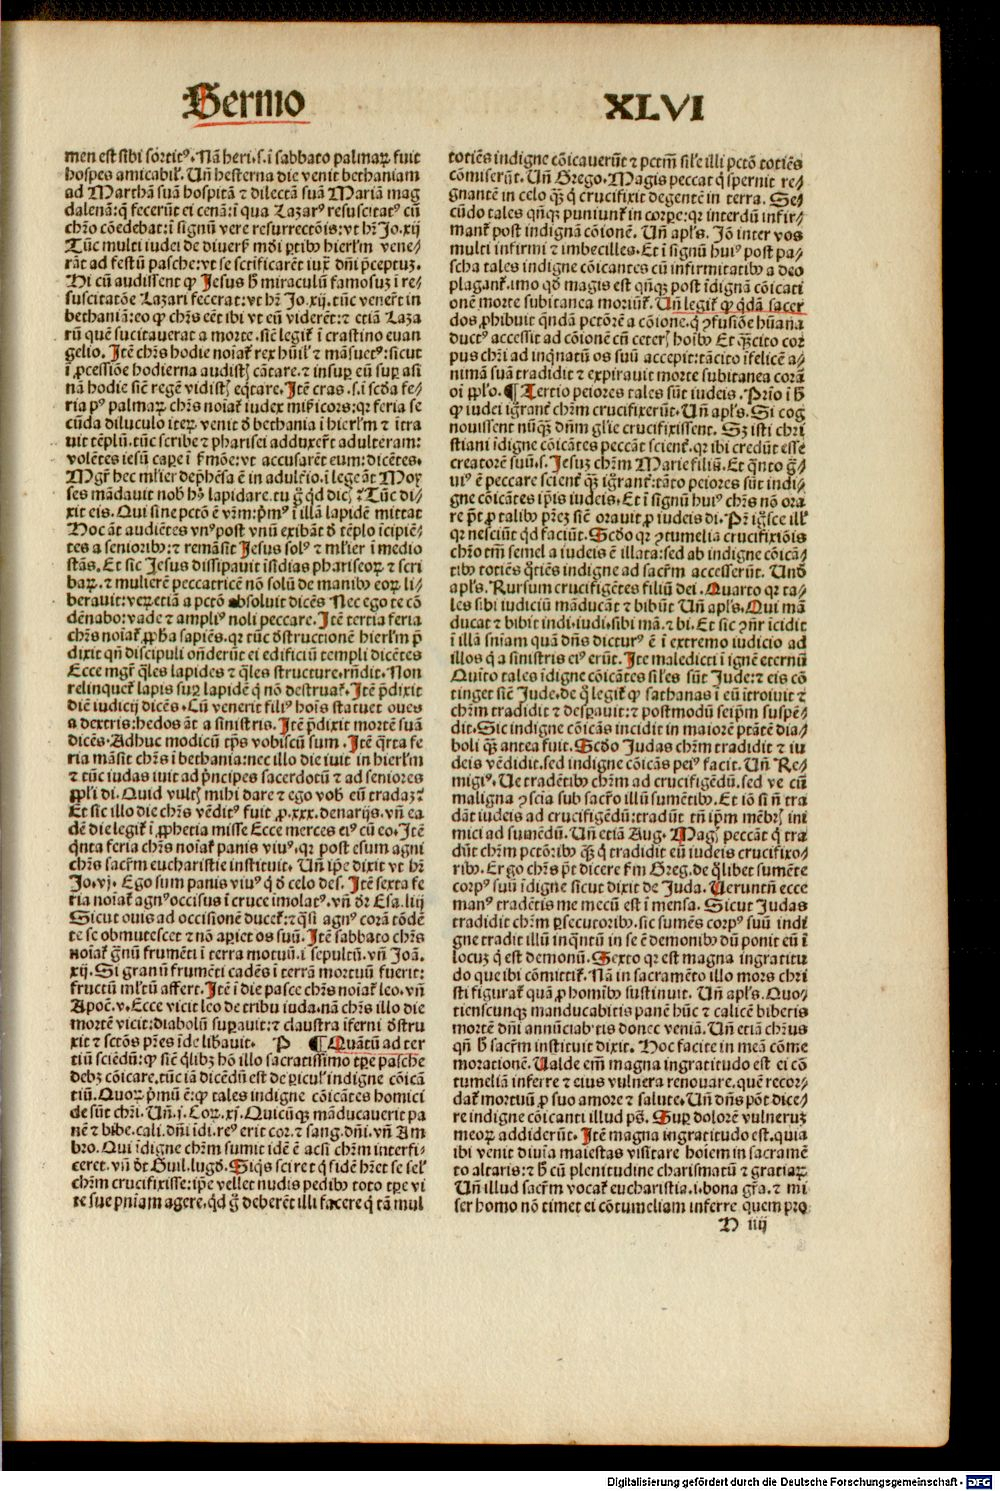 Sermo
XLVI
men est sibi sortitꝰ. Nā heri.s.i sabbato palmaꝝ fuit
hospes amicabil'. Uñ hesterna die venit bethaniam
ad Marthā suā hospitā ⁊ dilectā suā Mariā mag
dalenā: q̄ fecerūt ei cenā: ī qua Lazarꝰ resuscitatꝰ cū
chr̄o cōedebat: ī signū vere resurrectōis: vt hr̄ Jo.xij
Tūc multi iudei de diuers' mōi ꝑtibꝰ hierl'm vene⸗
rāt ad festū pasche: vt se scr̄ificarēt iux̄ dn̄i p̄ceptuꝫ.
Hi cū audissent ꝙ Jesus h̄ miraculū famosuꝫ ī re⸗
suscitatōe Lazari fecerat: vt hr̄ Jo.xij. tūc venerūt in
bethaniā: eo ꝙ chr̄s eēt ibi vt eū viderēt: ⁊ etiā Laza
rū quē suscitauerat a morte. sic̄ legit̄ ī crastino euan
gelio. Itē chr̄s hodie noīat̄ rex hūil' ⁊ māsuetꝰ: sicut
ī ꝓcessiōe hodierna audistꝭ cātare. ⁊ insuꝑ eū suꝑ asi
nā hodie sic̄ regē vidistꝭ eq̄tare. Itē cras .s.i scd̄a fe⸗
ria pꝰ palmaꝝ chr̄s noīat̄ iudex mīs̄icors: qr feria se
cūda diluculo iteꝝ venit d̄ bethania ī hierl'm ⁊ ītra
uit tēplū. tūc scribe ⁊ pharisei adduxerūt adulteram:
volētes iesū caꝑe ī s̄mōe: vt accusarēt eum: dicētes.
Mgr̄ hec ml'ier dep̄hēsa ē in adult̄io. ī lege āt Moy
ses mādauit nob' hꝰ lapidare. tu ḡ qd dicꝭ? Tūc di⸗
xit eis. Qui sine pctō ē vr̄m: p̄mꝰ ī illā lapidē mittat
Hoc āt audiētes vnꝰ post vnū exibāt d̄ tēplo īcipiē⸗
tes a senioribꝰ: ⁊ remāsit Jesus solꝰ ⁊ ml'ier ī medio
stās. Et sic Jesus dissipauit īsidias phariseoꝝ ⁊ scri
baꝝ. ⁊ mulierē peccatricē nō solū de manibꝰ eoꝝ li⸗
berauit: veꝝ etiā a pctō absoluit dicēs Nec ego te cō
dēnabo: vade ⁊ ampliꝰ noli peccare. Itē tertia feria
chr̄s noīat̄ ꝓph̄a sapiēs. qr tūc dstructionē hierl'm p̄
dixit qn̄ discipuli on̄derūt ei edificiū templi dicētes
Ecce mgr̄ q̄les lapides ⁊ q̄les structure. rn̄dit. Non
relinquet̄ lapis suꝑ lapidē q̄ nō destruat̄. Itē p̄dixit
diē iudicij dicēs. Cū venerit filiꝰ hoīs statuet oues
a dextris: hedos āt a sinistris. Itē p̄dixit mortē suā
dicēs. Adhuc modicū tp̄s vobiscū sum. Itē q̄rta fe
ria māsit chr̄s ī bethania: nec illo die iuit in hierl'm
⁊ tūc iudas iuit ad p̄ncipes sacerdotū ⁊ ad seniores
ꝓpl'i di. Quid vultꝭ mihi dare ⁊ ego vob' eū tradaꝫ?
Et sic illo die chr̄s vēditꝰ fuit ꝓ.xxx.denarijs. vn̄ ea
dē die legit̄ ī ꝓphetia misse Ecce merces eiꝰ cū eo. Itē
q̄nta feria chr̄s noīat̄ panis viuꝰ. qr post esum agni
chr̄s sacr̄m eucharistie instituit. Uñ ip̄e dixit vt hr̄
Jo.vj. Ego sum panis viuꝰ q̄ d̄ celo des. Itē sexta fe
ria noīat̄ agnꝰ occisus ī cruce imolatꝰ. vn̄ dr̄ Esa.liij
Sicut ouis ad occisionē ducet̄: ⁊ q̄si agnꝰ corā tōdē
te se obmutescet ⁊ nō aꝑiet os suū. Itē sabbato chr̄s
noīat̄ ḡnū frumēti ī terra motuū. ī sepultū. vn̄ Joā.
xij. Si granū frumēti cadēs ī terrā mortuū fuerit:
fructū ml'tū affert. Itē ī die pasce chr̄s noīat̄ leo. vn̄
Apoc̄. v. Ecce vicit leo de tribu iuda. nā chr̄s illo die
mortē vicit: diabolū suꝑauit: ⁊ claustra īferni dstru
xit ⁊ sctōs pr̄es īde lib̄auit. P ¶ Quātū ad ter
tiū sciēdū: ꝙ sic̄ q̄libꝫ hō illo sacratissimo tꝑe pasche
debꝫ cōicare. tūc iā dicēdū est de ꝑicul' indigne cōicā
tiū. Quoꝝ p̄mū ē: ꝙ tales indigne cōicātes homici
de sūt chr̄i. Uñ.j. Coꝝ.xj. Quicūqꝫ māducauerit pa
nē ⁊ bibe.cali.dn̄i īdi.reꝰ erit cor.⁊ sang.dn̄i. vn̄ Am
bro. Qui īdigne chr̄m sumit idē ē acsi chr̄m interfi⸗
ceret. vn̄ dt Guil.lugd̄. Siq̄s sciret q̄ fidē hr̄et se sel'
chr̄m crucifixisse: ip̄e vellet nudis pedibꝰ toto tꝑe vi
te sue pn̄iam agere. qd ḡ deberēt illi facere q̄ tā mul
totiēs indigne cōicauerūt ⁊ pctm̄ sil'e illi pctō totiēs
cōmiserūt. Uñ Grego. Magis peccat q̄ spernit re⸗
gnantē in celo qꝫ q̄ crucifixit degentē in terra. Se⸗
cūdo tales qn̄qꝫ puniunt̄ in corꝑe: qꝛ interdū infir⸗
mant̄ post indignā cōionē. Uñ apl's. Jō inter vos
multi infirmi ⁊ imbecilles. Et ī signū huiꝰ post pa⸗
scha tales indigne cōicantes cū infirmitatibꝰ a deo
plagant̄. imo qd magis est qn̄qꝫ post īdignā cōicati
onē morte subitanea moriūt̄. Uñ legit̄ ꝙ q̄dā sacer
dos ꝓhibuit qn̄dā pctōrē a cōione. q̄ ꝯfusiōe hūana
ductꝰ accessit ad cōionē cū ceterꝭ hoībꝰ Et qꝫcito cor
pus chr̄i ad inq̄natū os suū accepit: tācito īfelicē a⸗
nimā suā tradidit ⁊ expirauit morte subitanea corā
oī ꝓpl'o. ¶ Tertio peiores tales sūt iudeis. Prīo ī h̄
ꝙ iudei ign̄rant̄ chr̄m crucifixerūt. Uñ apl's. Si cog
nouissent nūqꝫ dn̄m gl'ie crucifixissent. Sꝫ isti chri
stiani īdigne cōicātes peccāt scient̄. qꝛ ibi credūt esse
creatorē suū.s. Jesuꝫ chr̄m Marie filiū. Et q̄nto ḡ
uiꝰ ē peccare scient̄ qꝫ ign̄rant̄: tāto peiores sūt indi⸗
gne cōicātes ip̄is iudeis. Et ī signū huiꝰ chr̄s nō ora
re p̄t ꝓ talibꝰ pr̄eꝫ sic̄ orauit ꝓ iudeis di. Pr̄ ignosce ill'
qꝛ nesciūt qd faciūt. Scd̄o qꝛ ꝯtumelia crucifixiōis
chr̄o tm̄ semel a iudeis ē illata: sed ab indigne cōicā⸗
tibꝰ totiēs q̄tiēs indigne ad sacr̄m accesserūt. Und̄
apl's. Rursum crucifigētes filiū dei. Quarto qꝛ ta⸗
les sibi iudiciū māducāt ⁊ bibūt Uñ apl's. Qui mā
ducat ⁊ bibit indi.iudi.sibi mā.⁊ bi. Et sic ꝯn̄r īcidit
ī illā sn̄iam quā dn̄s dicturꝰ ē ī extremo iudicio ad
illos q̄ a sinistris eiꝰ erūt. Ite maledicti ī ignē eternū
Quīto tales īdigne cōicātes sil'es sūt Jude: ⁊ eis cō
tinget sic̄ Jude. de q̄ legit̄ ꝙ sathanas ī eū ītroiuit ⁊
chr̄m tradidit ⁊ desꝑauit: ⁊ postmodū seip̄m suspē⸗
dit. Sic indigne cōicās incidit in maiorē ptātē dia⸗
boli qꝫ antea fuit. Scd̄o Judas chr̄m tradidit ⁊ iu
deis vēdidit. sed indigne cōicās peiꝰ facit. Uñ Re⸗
migiꝰ. Ue tradētibꝰ chr̄m ad crucifigēdū. sed ve cū
maligna ꝯscia sub sacr̄o illū sumētibꝰ. Et iō si n̄ tra
dāt iudeis ad crucifigēdū: tradūt tn̄ ip̄m mēbrꝭ ini
mici ad sumēdū. Uñ etiā Aug. Magꝭ peccāt q̄ tra
dūt chr̄m pctōribꝰ qꝫ q̄ tradidit eū iudeis crucifixo⸗
ribꝰ. Ergo chr̄s p̄t dicere s̄m Greg. de q̄libet sumēte
corpꝰ suū īdigne sicut dixit de Juda. Ueruntn̄ ecce
manꝰ tradētis me mecū est ī mensa. Sicut Judas
tradidit chr̄m ꝑsecutoribꝰ. sic sumēs corpꝰ suū indi
gne tradit illū inq̄ntū in se ē demonibꝰ dū ponit eū ī
locuꝫ q̄ est demonū. Sexto qꝛ est magna ingratitu
do que ibi cōmittit̄. Nā in sacramēto illo mors chri
sti figurat̄ quā ꝓ homībꝰ sustinuit. Uñ apl's. Quo⸗
tienscunqꝫ manducabitis panē hūc ⁊ calicē bibetis
mortē dn̄i annūciabitis donec veniā. Uñ etiā chr̄us
qn̄ h̄ sacr̄m instituit dixit. Hoc facite in meā cōme
morationē. Ualde em̄ magna ingratitudo est ei cō
tumeliā inferre ⁊ eius vulnera renouare. quē recor⸗
dat̄ mortuū ꝓ suo amore ⁊ salute. Uñ dn̄s pōt dice⸗
re indigne cōicanti illud ps̄. Suꝑ dolorē vulneruꝫ
meoꝝ addiderūt. Itē magna ingratitudo est. quia
ibi venit diuīa maiestas visitare hoīem in sacramē
to altaris: ⁊ h̄ cū plenitudine charismatū ⁊ gratiaꝝ
Uñ illud sacr̄m vocat̄ eucharistia.i.bona gr̄a. ⁊ mi
ser homo nō timet ei cōtumeliam inferre quem pro
N iiij
Digitalisierung gefördert durch die Deutsche Forschungsgemeinschaft - DFG